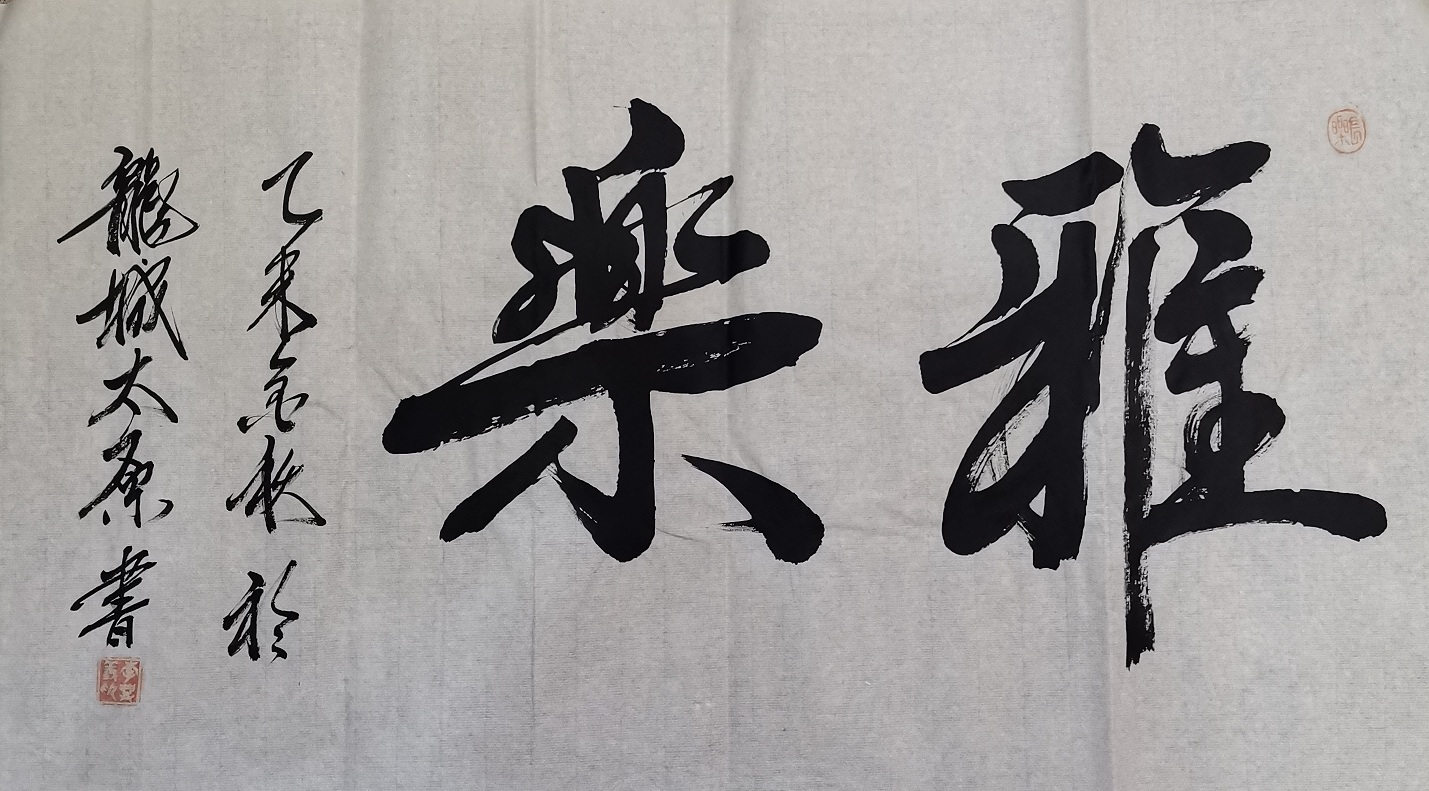 雅樂
乙未金秋於
龍城太原書